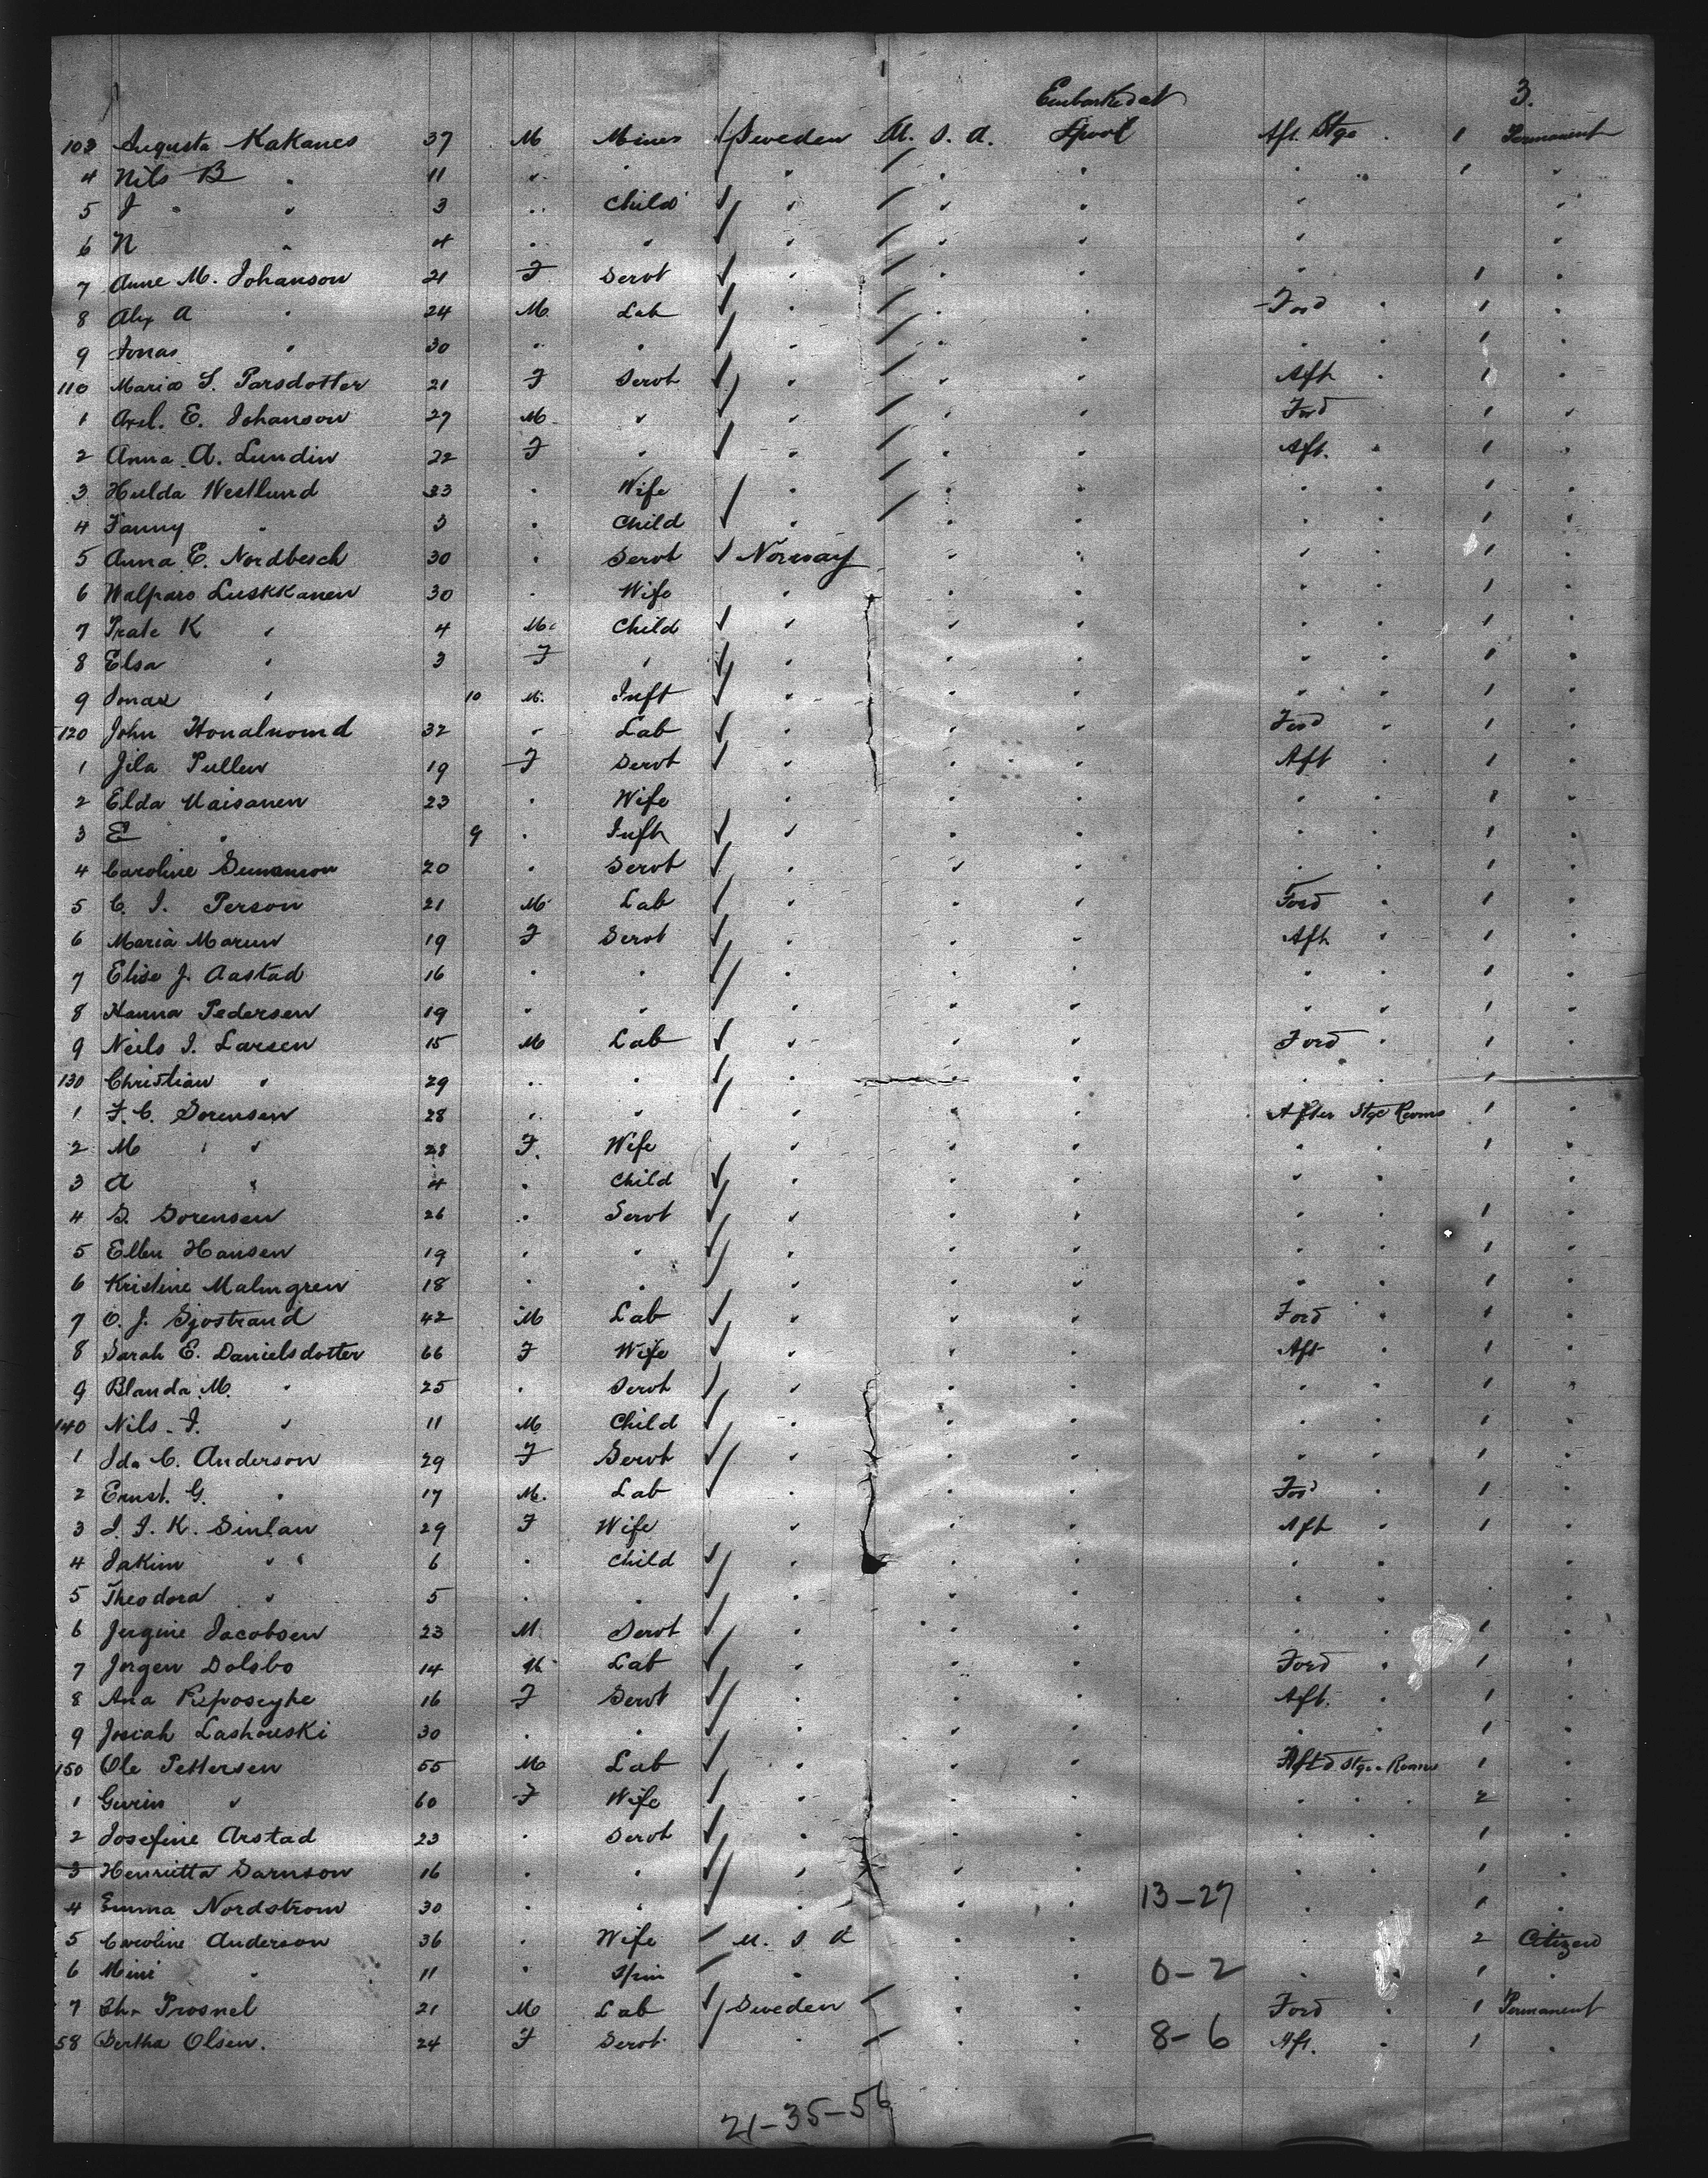 Embarked at 3.
103 Augusta Kakanes 37 M Miner Sweden U. S. A. Lpool Aft. Stge 1 Permanent
4 Nils B " 11 " " " " " " 1 "
5 J " " 3 " Child " " " " "
6 N " 4 " " " " " " "
7 Anne M. Johanson 21 F Servt " " " " 1
8 Alex A " 24 M Lab " " " Ford " 1 "
9 Jonas " 30 " " " " " " 1 "
110 Maria S. Parsdotter 21 F Servt " " " Aft " 1 "
1 Axel. E. Johanson 27 M " " " " Ford 1 "
2 Anna A. Lundin 22 F " " " " Aft. " 1 "
3 Hulda Westlund 33 " Wife " " " " " 1 "
4 Fanny " 3 " Child " " " " " 1 "
5 Anna E. Nordbesch 30 " Servt Norway " " " " 1 "
6 Walpars Luskkanen 30 " Wife " " " " " 1 "
7 K " 4 M Child " " " " " 1 "
8 Elsa " 3 F " " " " " " 1 "
9 " 10 M. Inft " " " " " 1 "
120 John 32 " Lab " " " Ford " 1 "
1 Jila Pullen 19 F Servt " " " Aft " 1 "
2 Elda Maisanen 23 " Wife " " " " " 1 "
3 E " 9 " Inft " " " " " 1 "
4 Caroline 20 " Servt " " " " " 1 "
5 C. J. Person 21 M Lab " " " Ford " 1 "
6 Maria 19 F Servt " " " Aft " 1 "
7 Elise J. Aastad 16 " " " " " " " 1 "
8 Hanna Pedersen 19 " " " " " " " 1 "
9 Neils J. Larsen 15 M Lab " " " Ford " 1 "
130 Christian " 29 " " " " " " " 1 "
1 F. C. Sorensen 28 " " " " " After Stge Rooms 1 "
2 M " " 28 F. Wife " " " " " 1 "
3 A " 4 " Child " " " " " "
4 S. Sorensen 26 " Servt " " " " " 1 "
5 Ellen Hansen 19 " " " " " " " 1 "
6 Kristine Malmgren 18 " " " " " " " 1 "
7 O. J. Sjostrand 42 M Lab " " " Ford " 1 "
8 Sarah E. Danielsdotter 66 F Wife " " " Aft " 1 "
9 Blanda M. " 25 " Servt " " " " " 1 "
140 Nils. J. " 11 M Child " " " " " 1 "
1 Ida C. Anderson 29 F Servt " " " " " 1 "
2 Ernst. G. " 17 M. Lab " " " Ford " 1 "
3 J. J. K. Sinlan 29 F Wife " " " Aft " 1 "
4 Jakim " " 6 " Child " " " " " "
5 Theodora " 5 " " " " " " " "
6 Jergine Jacobsen 23 M Servt " " " " " 1 "
7 Jorgen Dolsbo 14 M Lab " " " Ford " 1 "
8 Ana 16 F Servt " " " Aft. " 1 "
9 Josiah Lashouski 30 " " " " " " " 1 "
150 Ole Pettersen 55 M Lab " " " Aftd Stge. Rooms 1 "
1 " 60 F Wife " " " " " 2 "
2 Josefine Arstad 23 " Servt " " " " " 1 "
3 Henrietta Sarnson 16 " " " " " " " 1 "
4 Emma Nordstrom 30 " " " " " 13-27 " " 1 "
5 Caroline Anderson 36 " Wife U. S. A " " " " 2 Citizen
6 Mini " 11 " Spin " " " 0-2 " " 1 "
7 Prosnel 21 M Lab Sweden " " Ford " 1 Permanent
58 Bertha Olsen. 24 F Servt " " " 8-6 Aft. " 1 "
21-35-56